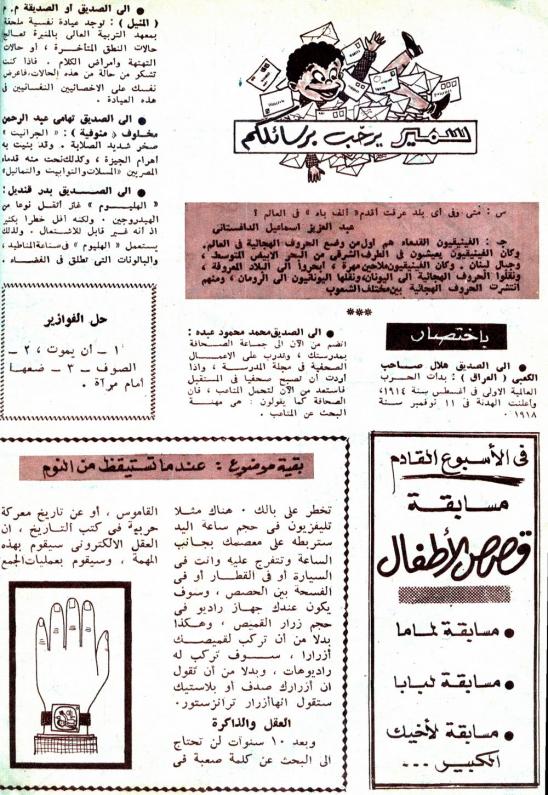 سمير يرحب برسائلكم
س : متى وفى أى بلد عرفت أقدم « ألف باء » فى العالم ؟
عبد العزيز اسماعيل الداغستانى
جـ : الفينيقيون القدماء هم أول من وضع الحروف الهجائية فى العالم.
وكان الفينيقيون يعيشون فى الطرف الشرقى من البحر الأبيض المتوسط ،
وجبال لبنان . وكان الفينيقيون ملاحين مهرة ، أبحروا الى البلاد المعروفة ،
ونقلوا الحروف الهجائية الى اليونان، ونقلها اليونانيون الى الرومان ، ومنهم
انتشرت الحروف الهجائية بين مختلف الشعوب
***
باختصار
● الى الصديق هلال صاحب
الكعبى ( العراق ) : بدأت الحرب
العالمية الاولى فى أغسطس سنة ١٩١٤،
وأعلنت الهدنة فى ١١ نوفمبر سنة
١٩١٨ ٠
● الى الصديق محمد محمود عبده :
انضم من الآن الى جماعة الصحافة
بمدرستك ، وتدرب على الاعمال
الصحفية فى مجلة المدرسة ، واذا
أردت أن تصبح صحفيا فى المستقبل
فاستعد من الآن لتحمل المتاعب ، فان
الصحافة كما يقولون : هى مهنة
البحث عن المتاعب .
● الى الصديق أو الصديقة م . م
( المنيل ) : توجد عيادة نفسية ملحقة
بمعهد التربية العالى بالمنيرة تعالج
حالات النطق المتأخرة ، أو حالات
التهتهة وأمراض الكلام . فاذا كنت
تشكو من حالة من هذه الحالات، فاعرض
نفسك على الاخصائيين النفسانيين فى
هذه العيادة .
● الى الصديق تهامى عبد الرحمن
مخلوف « منوفية » : « الجرانيت »
صخر شديد الصلابة . وقد بنيت به
أهرام الجيزة ، وكذلك نحت منه قدماء
المصريين «المسلات والتوابيت والتماثيل»
● الى الصديق بدر قنديل :
« الهليوم » غاز أثقل نوعا من
الهيدروجين . ولكنه أقل خطرا بكثير
اذ أنه غير قابل للاشتعال . ولذلك
يستعمل « الهليوم » فى صناعة المناطيد ،
والبالونات التى تطلق فى الفضاء .
حل الفوازير
١ ـ أن يموت ، ٢ ـ
الصوف ـ ٣ ـ ضعها
أمام مرآة .
فى الأسبوع القادم
مسابقة
قصص الأطفال
● مسابقة لماما
● مسابقة لبابا
● مسابقة لأخيك
الكبير ...
بقية موضوع : عندما تستيقظ من النوم
تخطر على بالك . هناك مثلا
تليفزيون فى حجم ساعة اليد
ستربطه على معصمك بجانب
الساعة وتتفرج عليه وانت فى
السيارة أو فى القطار أو فى
الفسحة بين الحصص ، وسوف
يكون عندك جهاز راديو فى
حجم زرار القميص ، وهكذا
بدلا من أن تركب لقميصك
أزرارا ، سوف تركب له
راديوهات ، وبدلا من أن تقول
ان أزرارك صدف أو بلاستيك
ستقول انها أزرار ترانزستور.
العقل والذاكرة
وبعد ١٠ سنوات لن تحتاج
الى البحث عن كلمة صعبة فى
القاموس ، أو عن تاريخ معركة
حربية فى كتب التاريخ ، ان
العقل الالكترونى سيقوم بهذه
المهمة ، وسيقوم بعمليات الجمع